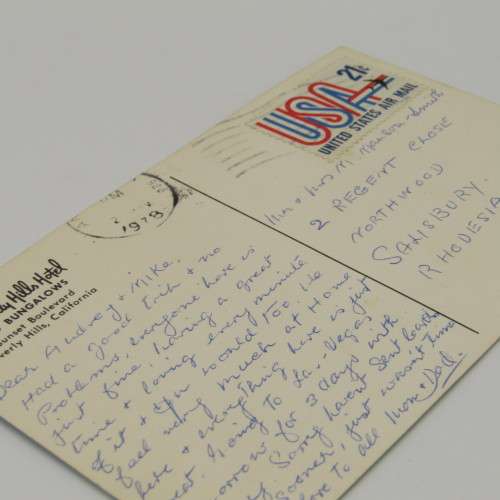 21¢
USA
UNITED STATES AIR MAIL
1978
Mr & Mrs M
2 REGENT CLOSE
NORTHWOOD
SALISBURY.
RHODESIA
ly Hills Hotel
BUNGALOWS
unset Boulevard
verly Hills, California
Dear Audrey & Mike,
Had a good trip & no
Problems, everyone here is
just fine having a great
time & loving every minute
of it & you would too. We
feel very much at Home
here & everything here is just
eat. Going to Las Vegas
orrow for 3 days with
Sorry haven't sent cards
sooner, just wasn't time
to all Mom & Dad.